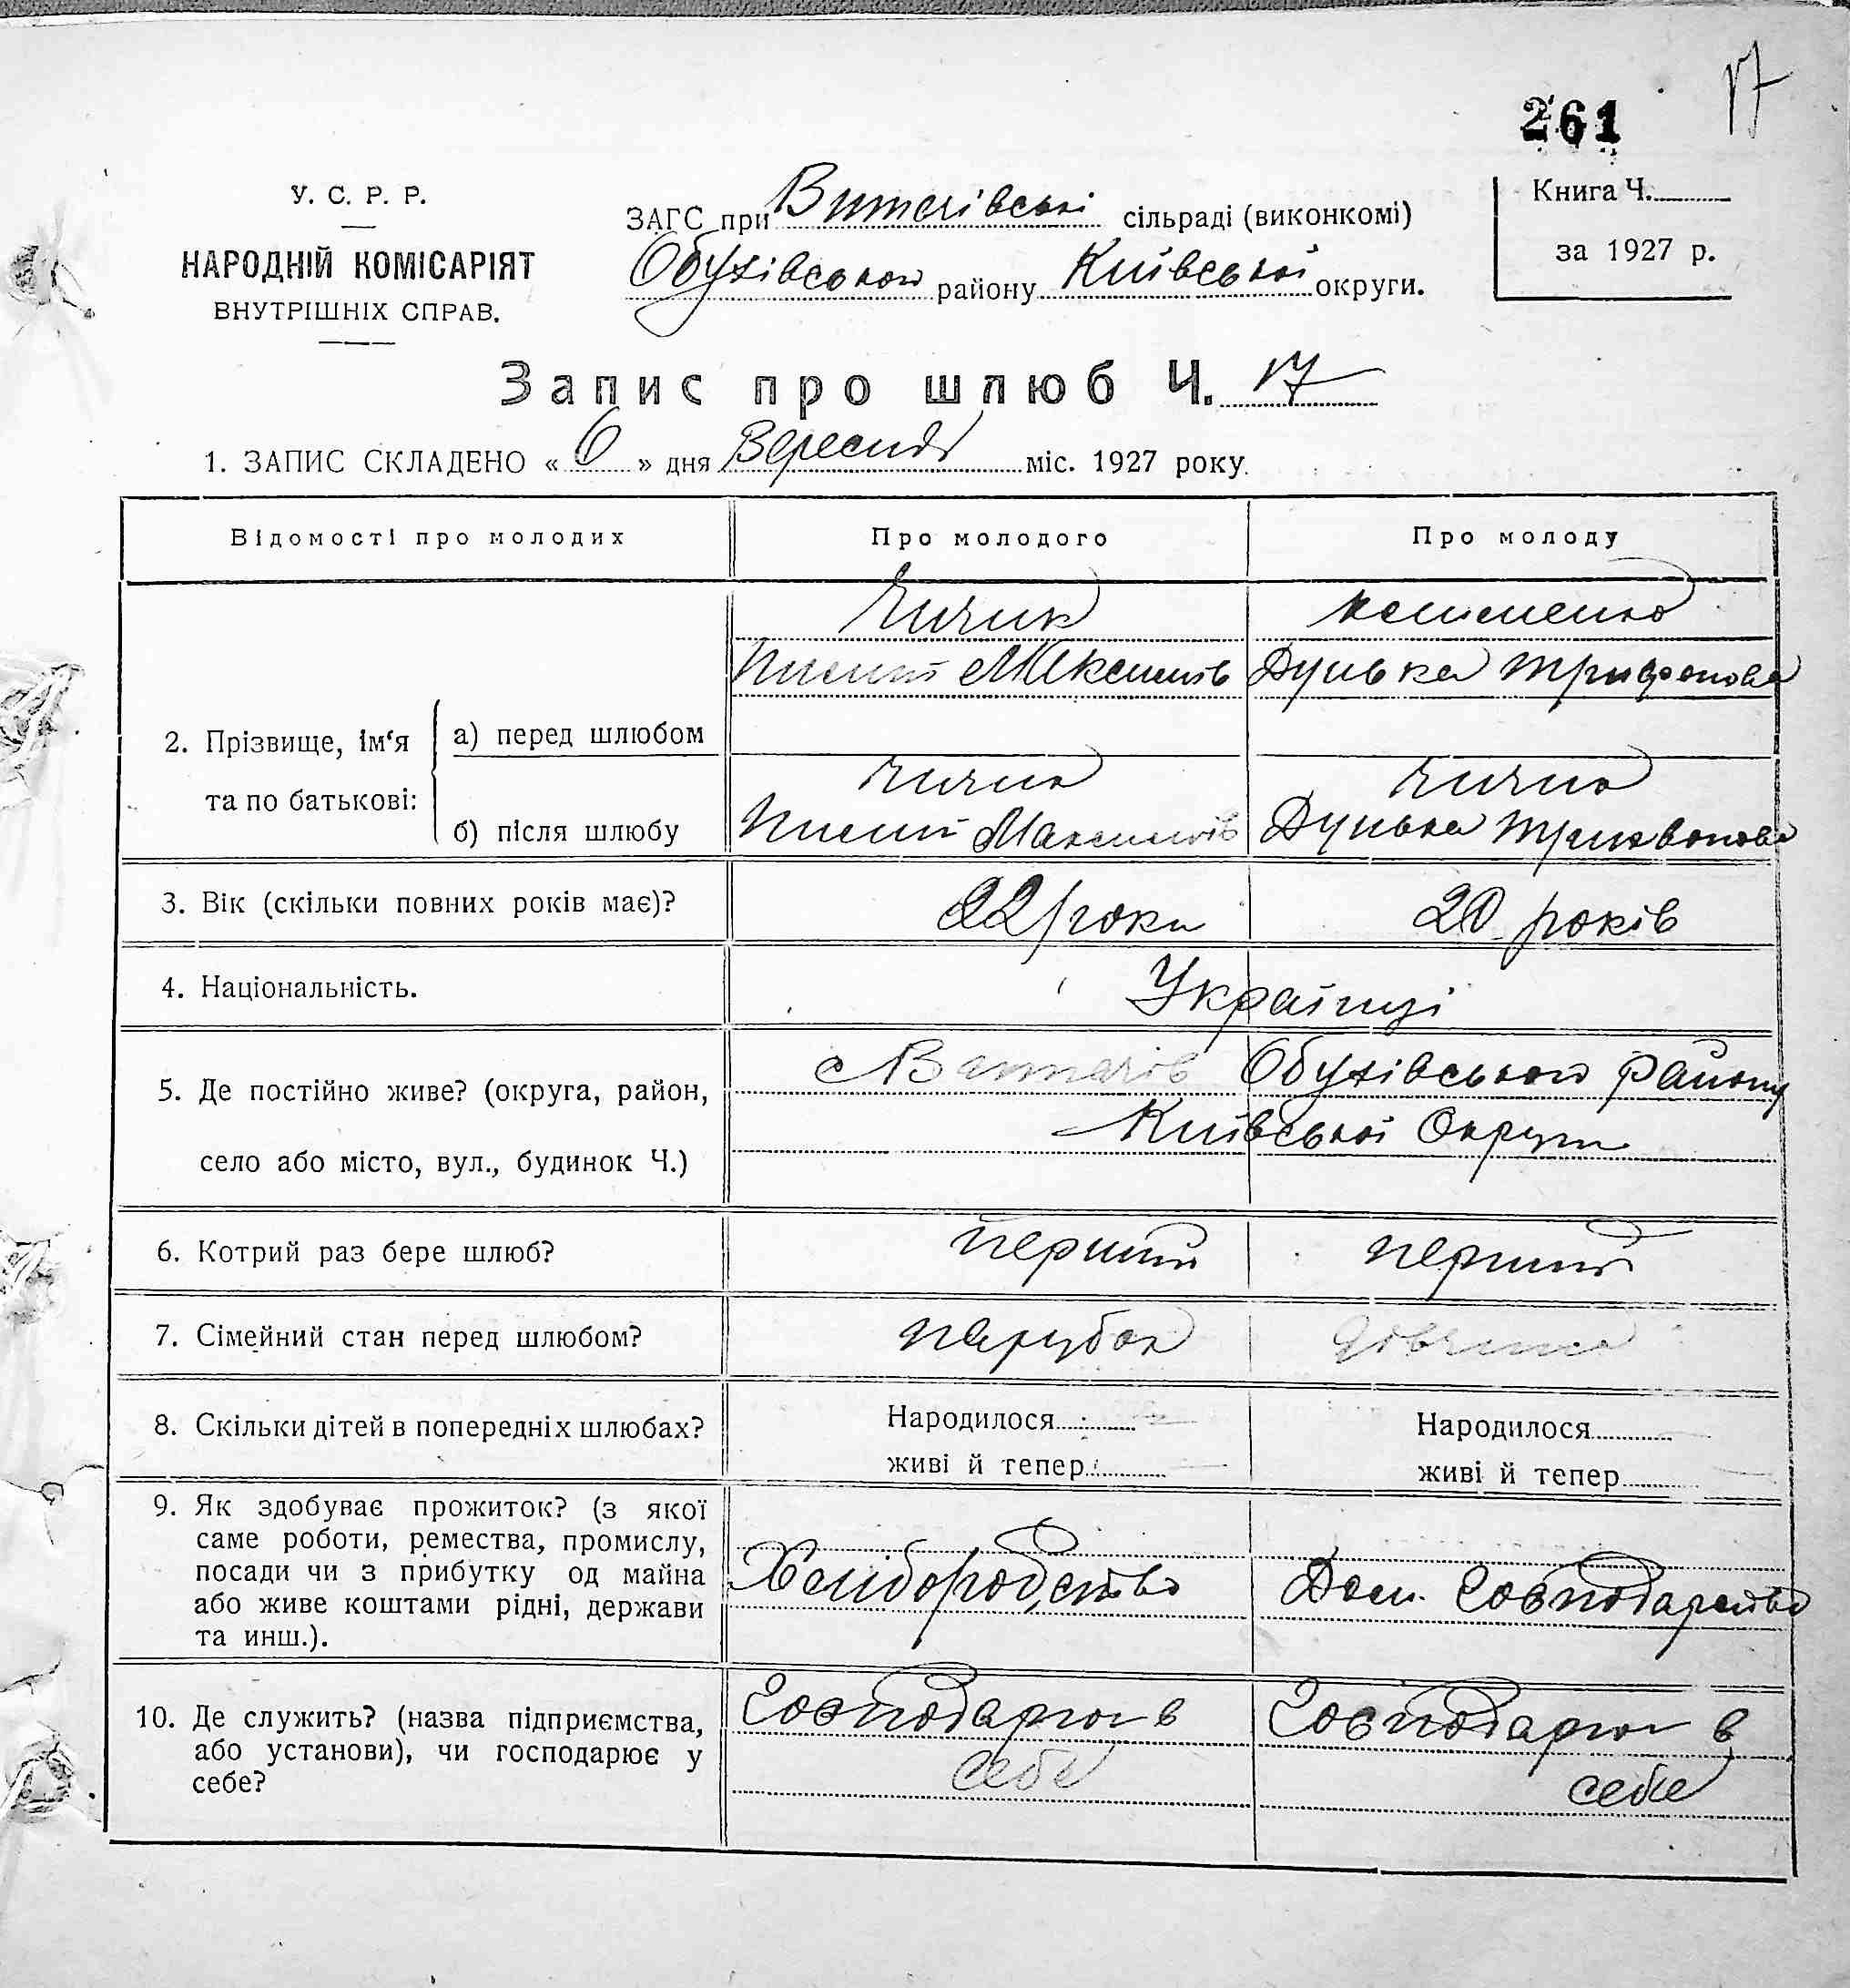 261
17
У. С. Р. Р.
НАРОДНІЙ КОМІСАРІЯТ
ВНУТРІШНІХ СПРАВ.
ЗАГС при Витачівські сільраді (виконкомі)
Обухівського району Київської округи.
Книга Ч.
за 1927 р.
Запис про шлюб Ч. 17
1. ЗАПИС СКЛАДЕНО « 6 » дня Вересня міс. 1927 року.
Відомості про молодих
Про молодого
Про молоду
2. Прізвище, ім‘я та по батькові:
а) перед шлюбом
Чичик
Максимів
Дунька Трифонова
б) після шлюбу
Чичик
Максимів
Чичик
Дунька Трихвонова
3. Вік (скільки повних років має)?
22 роки
20 років
4. Національність.
Українці
5. Де постійно живе? (округа, район,
село або місто, вул., будинок Ч.)
с Витачів Обухівського Району
Київської Округи
6. Котрий раз бере шлюб?
перший
перший
7. Сімейний стан перед шлюбом?
парубок
дівчина
8. Скільки дітей в попередніх шлюбах?
Народилося
живі й тепер
Народилося
живі й тепер
9. Як здобуває прожиток? (з якої
саме роботи, ремества, промислу,
посади чи з прибутку од майна
або живе коштами рідні, держави
та инш.).
Хлібородство
Дом. Господарство
10. Де служить? (назва підприємства,
або установи), чи господарює у
себе?
Господарює в
себе
Господарює в
себе